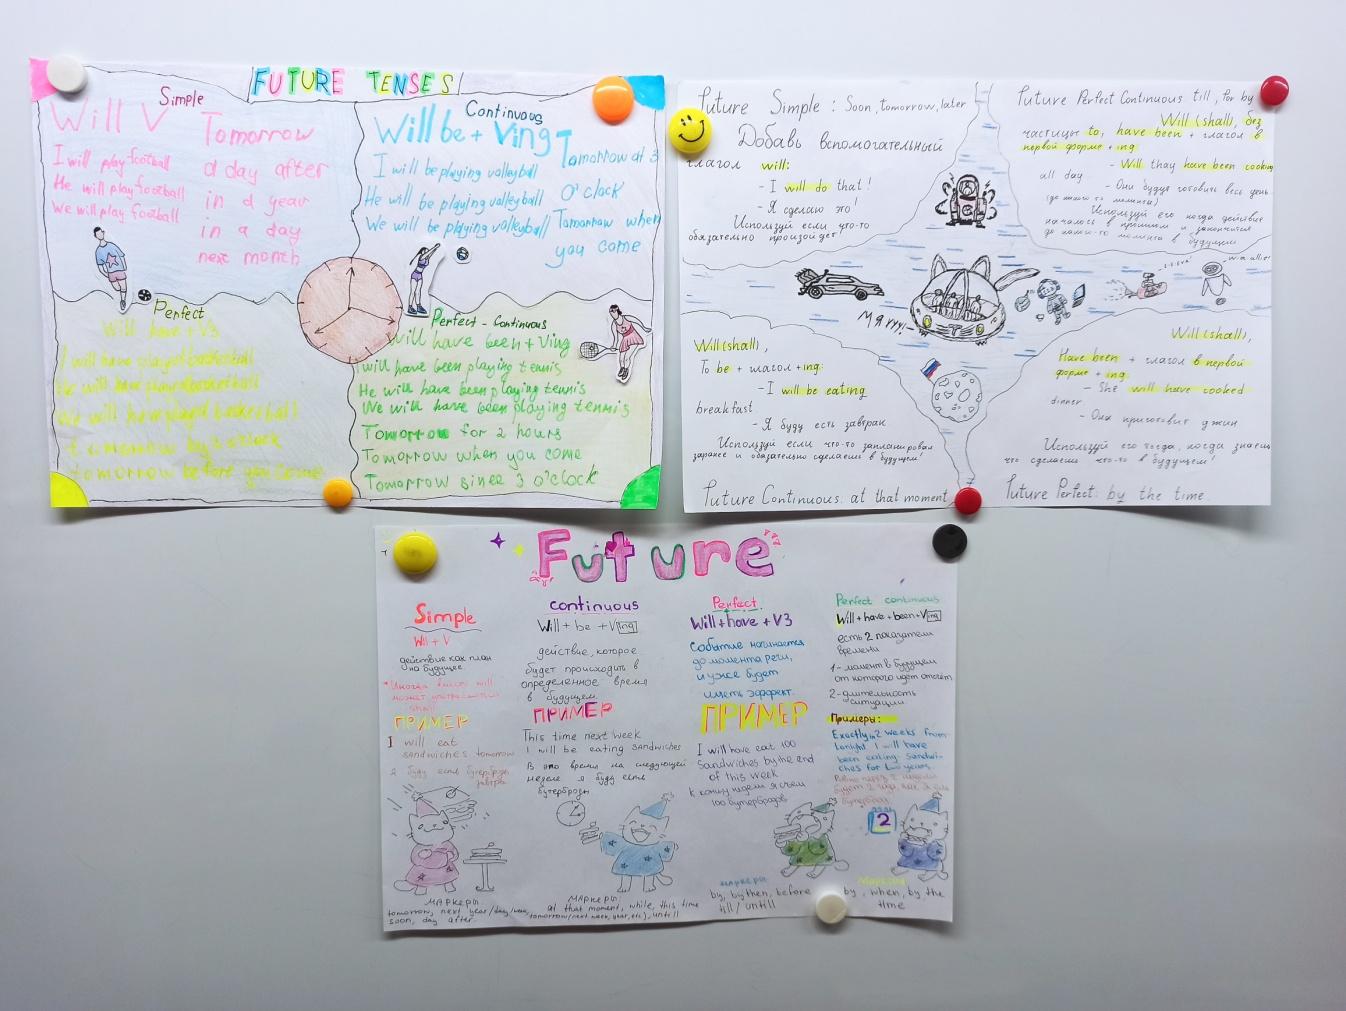 FUTURE TENSES
Simple
Will V
I will play football
He will play football
We will play football
Tomorrow
a day after
in a year
in a day
next month
Continuous
Will be + Ving
I will be playing volleyball
He will be playing volleyball
We will be playing volleyball
Tomorrow at 3
o'clock
Tomorrow when
you come
Perfect
Will have + V3
I will have played basketball
He will have played basketball
We will have played basketball
tomorrow by 3 o'clock
tomorrow before you come
Perfect - Continuous
will have been + Ving
I will have been playing tennis
He will have been playing tennis
We will have been playing tennis
Tomorrow for 2 hours
Tomorrow when you come
Tomorrow since 3 o'clock
Future Simple: Soon, tomorrow, later
Добавь вспомогательный
глагол will:
- I will do that!
- Я сделаю это!
Используй если что-то
обязательно произойдет!
Future Perfect Continuous till, for by
Will (shall), без
частицы to, have been + глагол в
первой форме + ing
- Will thay have been cooking
all day
- Они будут готовить весь день
(до какого-то момента)
Используй его когда действие
началось в прошлом и закончится
до какого-то момента в будущем
Мяууу!
Will (shall),
To be + глагол + ing:
- I will be eating
breakfast.
- Я буду есть завтрак
Используй если что-то запланировал
заранее и обязательно сделаешь в будущем!
Future Continuous: at that moment
Will (shall),
Have been + глагол в первой
форме + ing
- She will have cooked
dinner
- Она приготовит
Используй его тогда, когда знаешь
что сделаешь что-то в будущем!
Future Perfect: by the time.
Future
Simple
Will + V
действие как план
на будущее
ПРИМЕР
I will eat
sandwiches tomorrow
Я буду есть бутерброды
завтра
Маркеры:
tomorrow, next year/day/week,
soon, day after
continuous
Will + be + Ving
действие, которое
будет происходить в
определенное время
в будущем.
ПРИМЕР
This time next week
I will be eating sandwiches
В это время на следующей
неделе я буду есть
бутерброды
Маркеры:
at that moment, while, this time
tomorrow/next week, year, etc), untill
Perfect
Will + have + V3
Событие начинается
до момента речи,
и уже будет
иметь эффект.
ПРИМЕР
I will have eat 100
Sandwiches by the end
of this week
К концу недели я съем
100 бутербродов
маркеры
by, by then, before
till / untill
Perfect continuous
Will + have + been + Ving
есть 2 показателя
времени
1 - момент в будущем
от которого идет отсчет
2 - длительность
ситуации
Примеры:
Exactly in 2 weeks from
tonight I will have
been eating sandwi-
ches for two years
2
Маркеры
by, when, by the
time